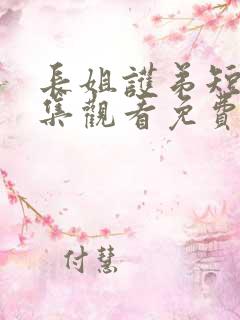 長姐護弟短
集觀看免費
付慧